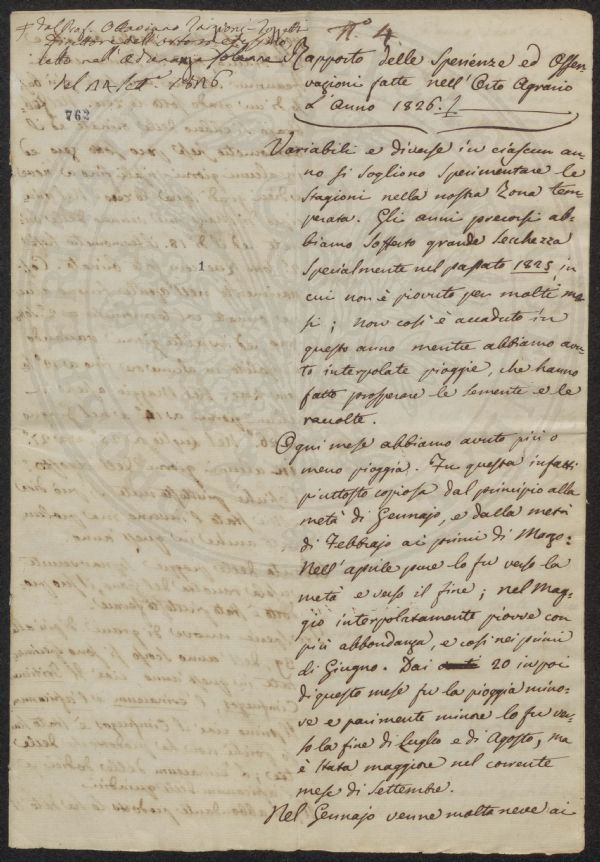 + dal Prof. Ottaviano Targioni-Tozzetti
Direttore dell'orto
letto nell'Adunanza solenne
del Set.e 1826.
762
1
N.o 4
Rapporto delle Sperienze ed Osser=
vazioni fatte nell'Orto Agrario
L'Anno 1826. +
Variabili e diverse in ciascun an=
no si sogliono sperimentare le
stagioni nella nostra Zona tem=
perata. Gli anni precorsi ab=
biamo sofferto grande secchezza
specialmente nel passato 1825 in
cui non è piovuto per molti me=
si; non così è accaduto in
questo anno mentre abbiamo avu=
to interpolate pioggie, che hanno
fatto prosperare le semente e le
raccolte.
Ogni mese abbiamo avuto più o
meno pioggia. Fu questa infatti
piuttosto copiosa dal principio alla
metà di Gennajo, e dalla metà
di Febbrajo ai primi di Marzo.
Nell'aprile pure lo fu verso la
metà e verso il fine; nel Mag=
gio interpolatamente piovve con
più abbondanza, e così nei primi
di Giugno. Dai 20 in poi
di questo mese fu la pioggia mino=
re e parimente minore lo fu ver=
so la fine di Luglio e di Agosto, ma
è stata maggiore nel corrente
mese di Settembre.
Nel Gennajo venne molta neve ai